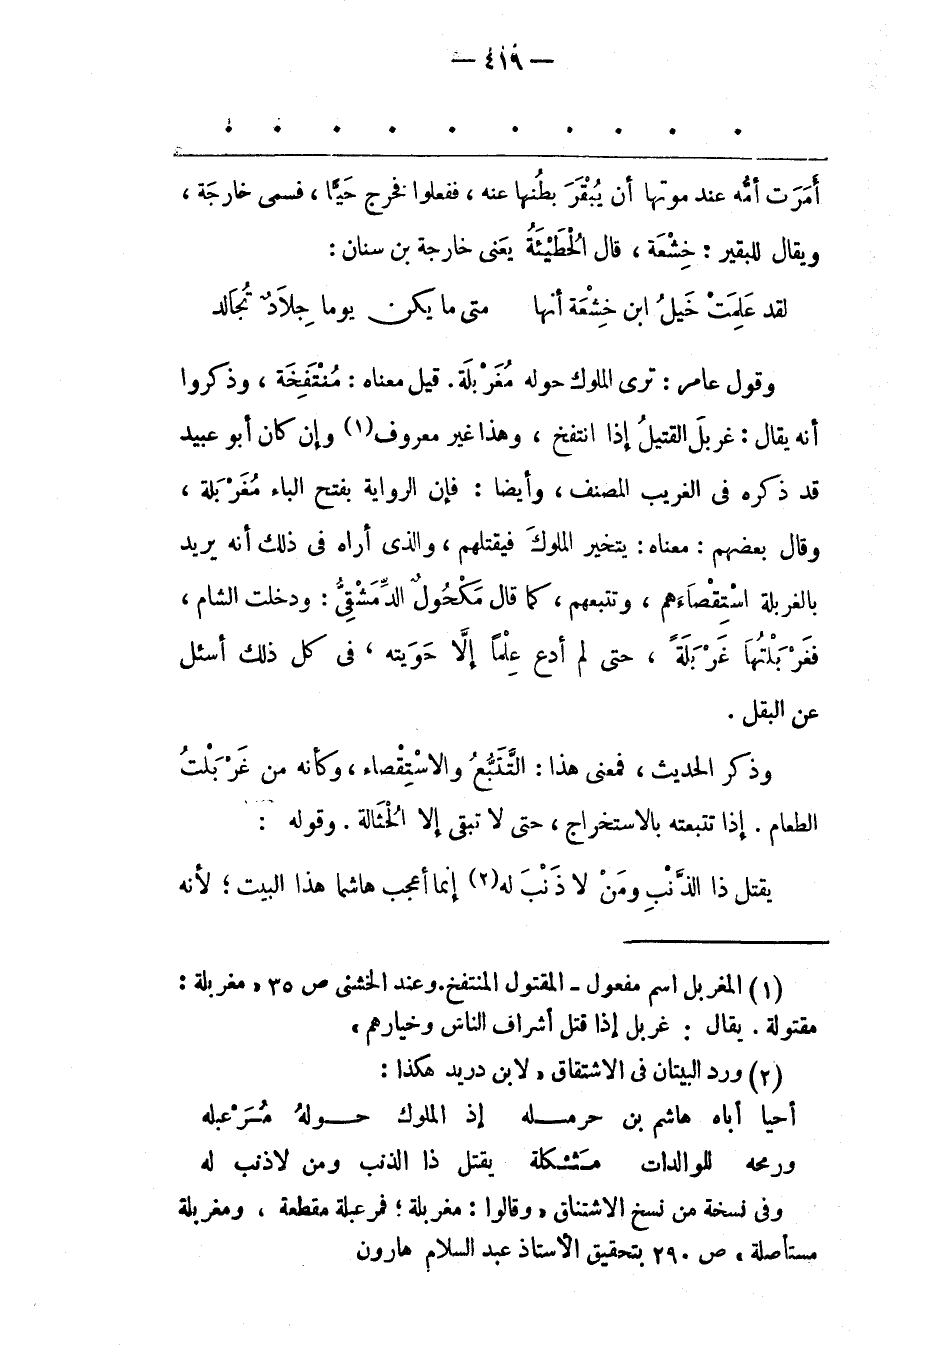 — ٤١٩ —
. . . . . . . . . .
أَمَرَت أمُّه عند موتها أن يُبْقَرَ بطنُها عنه ، ففعلوا فخرج حَيًّا ، فسمى خارجَة ،
ويقال للبقير : خِشْعَة ، قال الْحُطَيْئَةُ يعنى خارجة بن سنان :
لقد عَلِمَتْ خَيلُ ابن خِشْعَة أنها متى ما يكن يوما جِلَادٌ تُجَالد
وقول عامر : ترى الملوك حوله مُغَرْبلَة . قيل معناه : مُنْتَفِخَة ، وذكروا
أنه يقال : غربلَ القتيلُ إذا انتفخ ، وهذا غير معروف(١) وإن كان أبو عبيد
قد ذكره فى الغريب المصنف ، وأيضا : فإن الرواية بفتح الباء مُغَرْبَلة ،
وقال بعضهم : معناه : يتخير الملوكَ فيقتلهم ، والذى أراه فى ذلك أنه يريد
بالغربلة اسْتِقْصَاءَهم ، وتتبعهم ، كما قال مَكْحُولٌ الدِّمَشْقِيُّ : ودخلت الشام ،
فغَرْبَلْتُهَا غَرْبَلَةً ، حتى لم أدع عِلْمًا إلَّا حَوَيته ، فى كل ذلك أسئل
عن البقل .
وذكر الحديث ، فمعنى هذا : التَّتَبُّعُ والاسْتِقْصاء ، وكأنه من غَرْبَلْتُ
الطعام . إذا تتبعته بالاستخراج ، حتى لا تبقى إلا الْحُثَالة . وقوله :
يقتل ذا الذَّنْبِ ومَنْ لا ذَنْبَ له(٢) إنما أعجب هاشما هذا البيت ؛ لأنه
(١) المغربل اسم مفعول ـ المقتول المنتفخ. وعند الخشنى ص ٣٥ « مغربلة :
مقتولة . يقال : غربل إذا قتل أشراف الناس وخيارهم »
(٢) ورد البيتان فى الاشتقاق « لابن دريد هكذا :
أحيا أباه هاشم بن حرمـــله إذ الملوك حـــولهُ مُـرَعْبله
ورمحه للوالدات مثـكلة يقتل ذا الذنب ومن لاذنب له
وفى نسخة من نسخ الاشتناق « وقالوا : مغربلة ؛ فمرعبلة مقطعة ، ومغربلة
مستأصلة » ص ٢٩٠ بتحقيق الأستاذ عبد السلام هارون